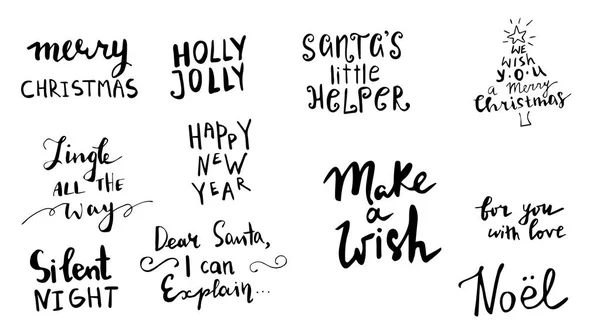 merry
CHRISTMAS
HOLLY
JOLLY
SANTA'S
little
HELPER
WE
WiSH
Y·O·U
a Merry
Christmas
Jingle
ALL THE
Way
HAPPY
NEW
YEAR
Make
a
Wish
for you
with love
Silent
NIGHT
Dear Santa,
I can
Explain...
Noël